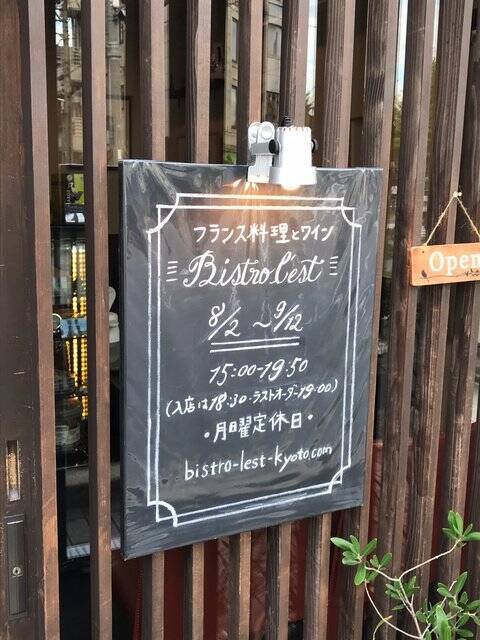 フランス料理とワイン
Bistro l'est
8/2 ~ 9/12
15:00-19:50
(入店は18:30・ラストオーダー19:00)
・月日曜定休日・
bistro-lest-kyoto.com
Open